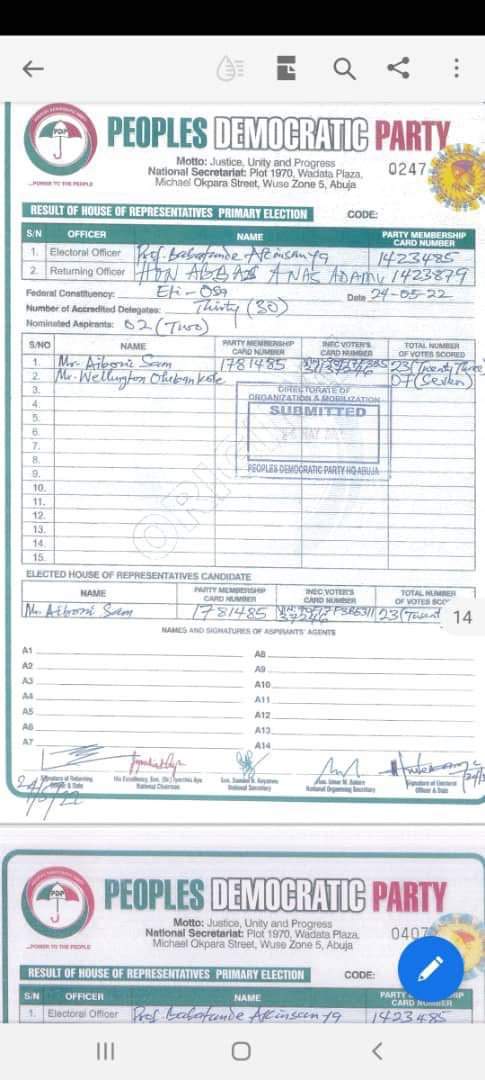 PDP
...POWER TO THE PEOPLE
PEOPLES DEMOCRATIC PARTY
Motto: Justice, Unity and Progress
National Secretariat: Plot 1970, Wadata Plaza,
Michael Okpara Street, Wuse Zone 5, Abuja
0247
RESULT OF HOUSE OF REPRESENTATIVES PRIMARY ELECTION CODE:
S/N OFFICER NAME PARTY MEMBERSHIP CARD NUMBER
1. Electoral Officer Prof. Babatunde 1423485
2. Returning Officer HON ABBAS ANAS ADAMU 1423879
Federal Constituency: Eti-Osa Date 24-05-22
Number of Accredited Delegates: Thirty (30)
Nominated Aspirants: 02 (Two)
S/NO NAME PARTY MEMBERSHIP CARD NUMBER INEC VOTER'S CARD NUMBER TOTAL NUMBER OF VOTES SCORED
1. Mr. Aiboni Sam 1781485 23 (Twenty Three)
2. Mr. Wellington 07 (Seven)
3.
4.
5.
6.
7.
8.
9.
10.
11.
12.
13.
14.
15.
DIRECTORATE OF
ORGANIZATION & MOBILIZATION
SUBMITTED
MAY
PEOPLES DEMOCRATIC PARTY HQ ABUJA
ORIGINAL
ELECTED HOUSE OF REPRESENTATIVES CANDIDATE
NAME PARTY MEMBERSHIP CARD NUMBER INEC VOTER'S CARD NUMBER TOTAL NUMBER OF VOTES
Mr. Aiboni Sam 1781485 23
14
NAMES AND SIGNATURES OF ASPIRANTS' AGENTS
A1 A8
A2 A9
A3 A10
A4 A11
A5 A12
A6 A13
A7 A14
Signature of Returning Officer & Date
National Chairman
National Secretary
National Organising Secretary
Signature of Electoral Officer & Date
24/5/22
PDP
...POWER TO THE PEOPLE
PEOPLES DEMOCRATIC PARTY
Motto: Justice, Unity and Progress
National Secretariat: Plot 1970, Wadata Plaza,
Michael Okpara Street, Wuse Zone 5, Abuja
0407
RESULT OF HOUSE OF REPRESENTATIVES PRIMARY ELECTION CODE:
S/N OFFICER NAME PARTY
1. Electoral Officer Prof. Babatunde 1423485